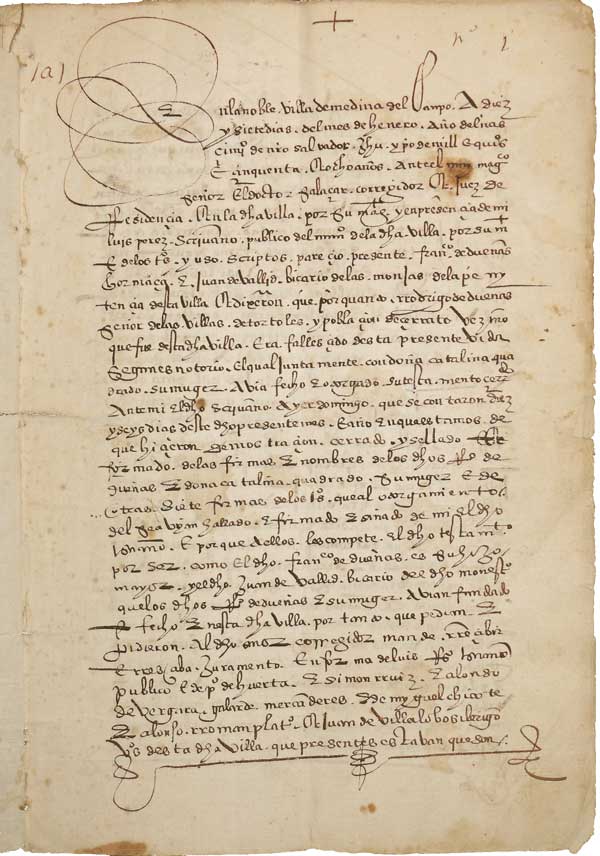 +
nº 1
1a1
En la noble . villa de medina del Campo . A diez
y siete dias . del mes de henero . Año del nas
cimyº de nrō salvador . Jhū . xpō de mill E quisº
E cinquenta . E ocho años . Ante el mag.co
Señor El dotor Salacar . corregidor E Juez de
Residencia . En la dha villa . por su mag. y en presencia de mi
luis perez . Scrivano . publico del num.º de la dha villa . por su m
E de los tºs . yuso . Scriptos . parecio . presente . Fran.co de dueñas
hormaça . E Juan de Vallid . bicario de las . monjas . de la pe ny
tencia desta villa E dixeron . que . por quanto . rrodrigo de dueñas
Señor de las Villas . de tortoles . y poblacion de cerrato . Vezino
que fue desta dha villa . Era . fallescido desta presente vida
Segun es notorio . El qual junta mente . con doña catalina qua
drado . su muger . Avia fecho E otorgado . su testa . mento cerrdº
Ante mi El dhº Scrivano . Ayer domingo . que se contaron diez
y seys dias deste dho presente mes . E año en que estamos . de
que hizieron demostracion . cerrado . y sellado
firmado . de las firmas E nombres de los dhos Rº de
dueñas E dona catalina . quadrado . Su muger E de
otras . Siete firmas de los tºs . que al otorgamiento
del Se avyan hallado . E firmado E sinado de mi el dho
Scrivano . E porque a ellos . les compete . el dho testam.to
por ser . como El dho . fran.co de dueñas . es Su hijo
mayor . y el dho Juan de Vallid . bicario del dho monestº
que los dhos Rº de dueñas E su muger . Avian fundado
E fecho En esta dha villa . por tanto . que pedian . E
pidieron . Al dho señor corregidor mande . rrecibir
E rresciba . Juramento . En forma de luis
publico E de pº de huerta . E simon rruiz . E alonso
de vergara galarde mercaderes . E de myguel chicote
E alonso . rroman platº . E Juan de villalobos clerigo
vºs desta dha villa . que presentes estavan que son